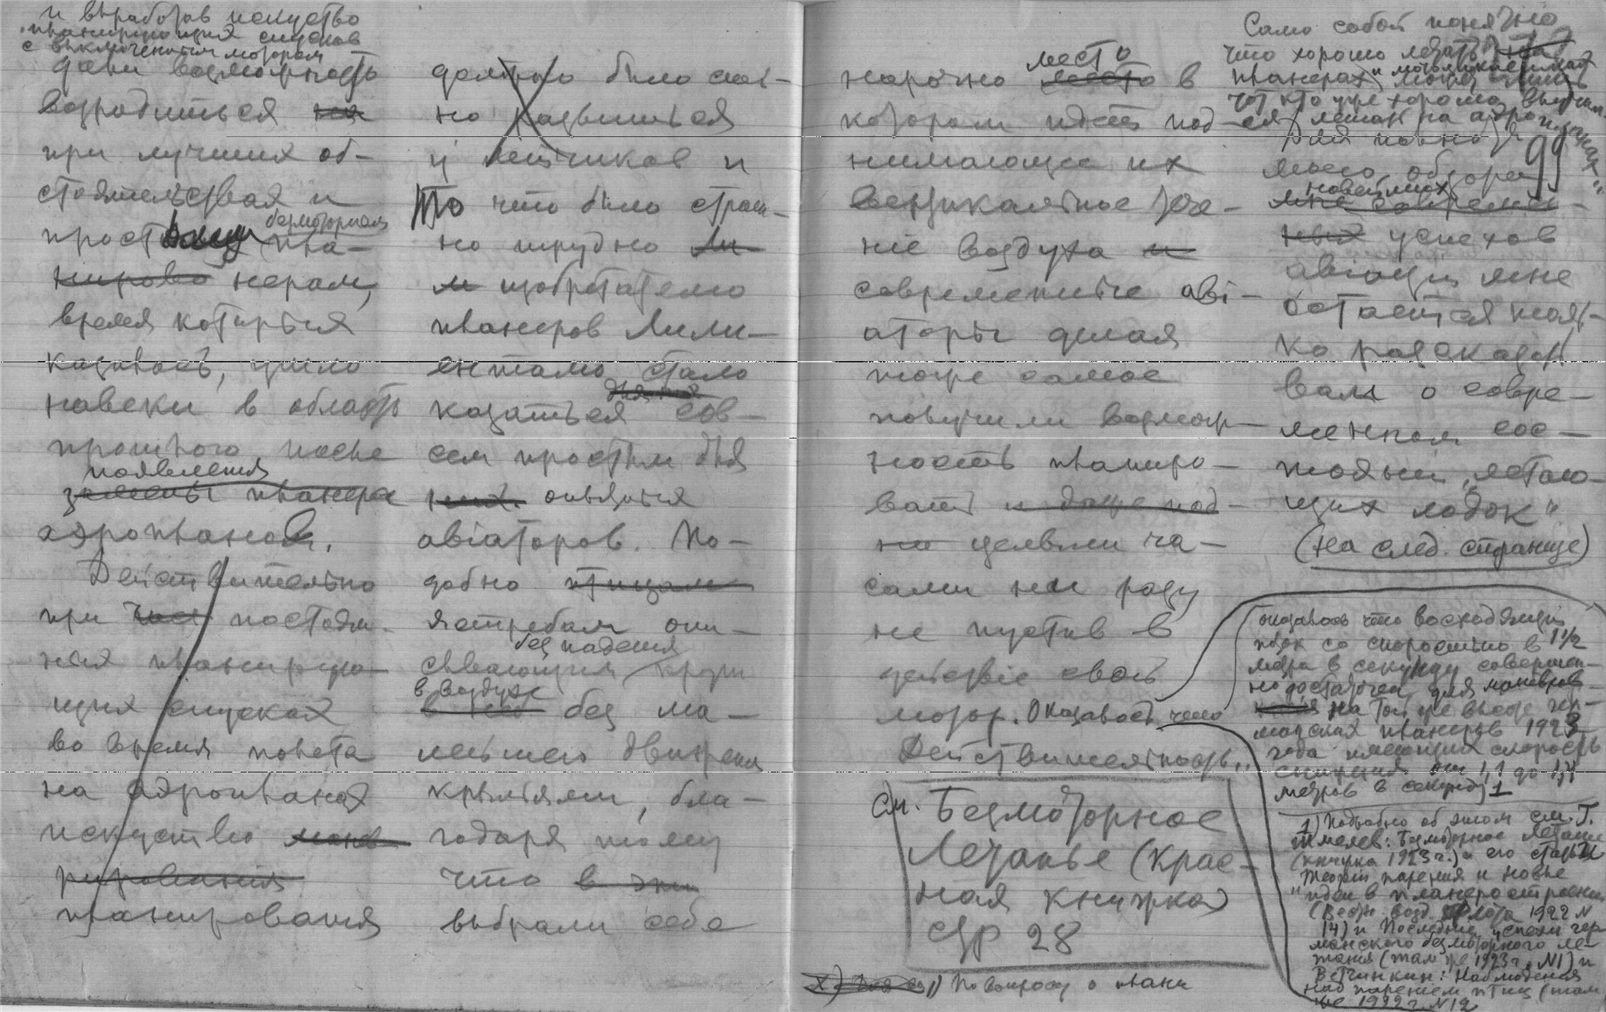 и выработав искусство
планирующих спусков
с выключенным мотором
дали возможность
возродиться на
при лучших об-
стоятельствах и
безмоторная
пла-
нирово нерам,
время которых
казалось, ушло
навеки в область
прошлого после
появления
замены планера
аэропланом.
Действительно
при постоян-
ных планирую-
щих спусках
во время полета
на аэропланах
искусство
рирования
планирования
должно было силь-
но развиться
у летчиков и
То что было страш-
но трудно
изобретателю
планеров Лили-
енталю, стало
казаться сов-
сем простым для
них опытных
авіаторов. По-
добно птицам
ястребам опи-
без падения
сывающим круги
в воздухе
без ма-
лейшего движения
крыльями, бла-
годаря тому
что в эти
выбрали себе
место
нарочно место в
котором идет под-
нимающее их
вертикальное тече-
ніе воздуха и
современные аві-
аторы делая
тоже самое
получили возмож-
ность планиро-
вать и даже под-
целыми ча-
сами ни разу
не пустив в
действіе свой
мотор. Оказалось, чемо
Действительность,,
см. Безмоторное
Летанье (крас-
ная книжка)
стр 28
1) По вопросу о плани
Само собой понятно
что хорошо летать на
планерах и могут лишь
тот кто уже хорошо выучил-
ся летать на аэропланах"
99
Для полноты
моего обзора
новейших
мне современ-
ных успехов
авіаціи мне
остается толь-
ко рассказать
вам о совре-
менном сос-
тояньи „летаю-
щих лодок"
(на след. странице)
оказалось что восходящий
поток со скоростью в 1½
метра в секунду совершен-
но достаточен для маневров
на той же высоте гер-
манских планеров 1923
года имеющих скорость
снижения от 1,1 до 1,4
метров в секунду 1
1) Подробно об этом см. Г.
Шмелев: Безмоторное Летание
(книжка 1923 г.) и его статьи
Теория парения и новые
"идеи в планеростроении
(Вестн. возд. флота 1922 N
14) и Последние успехи гер-
манского безмоторного ле-
тания (там же 1923 г. N1) и
Ветчинкин: Наблюдения
над парением птиц (там
же 1922 г. N12